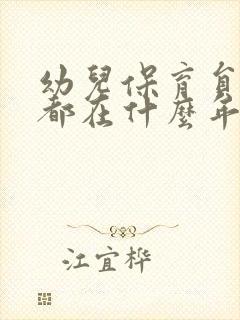 幼兒保育員
都在什麼年
江宜桦